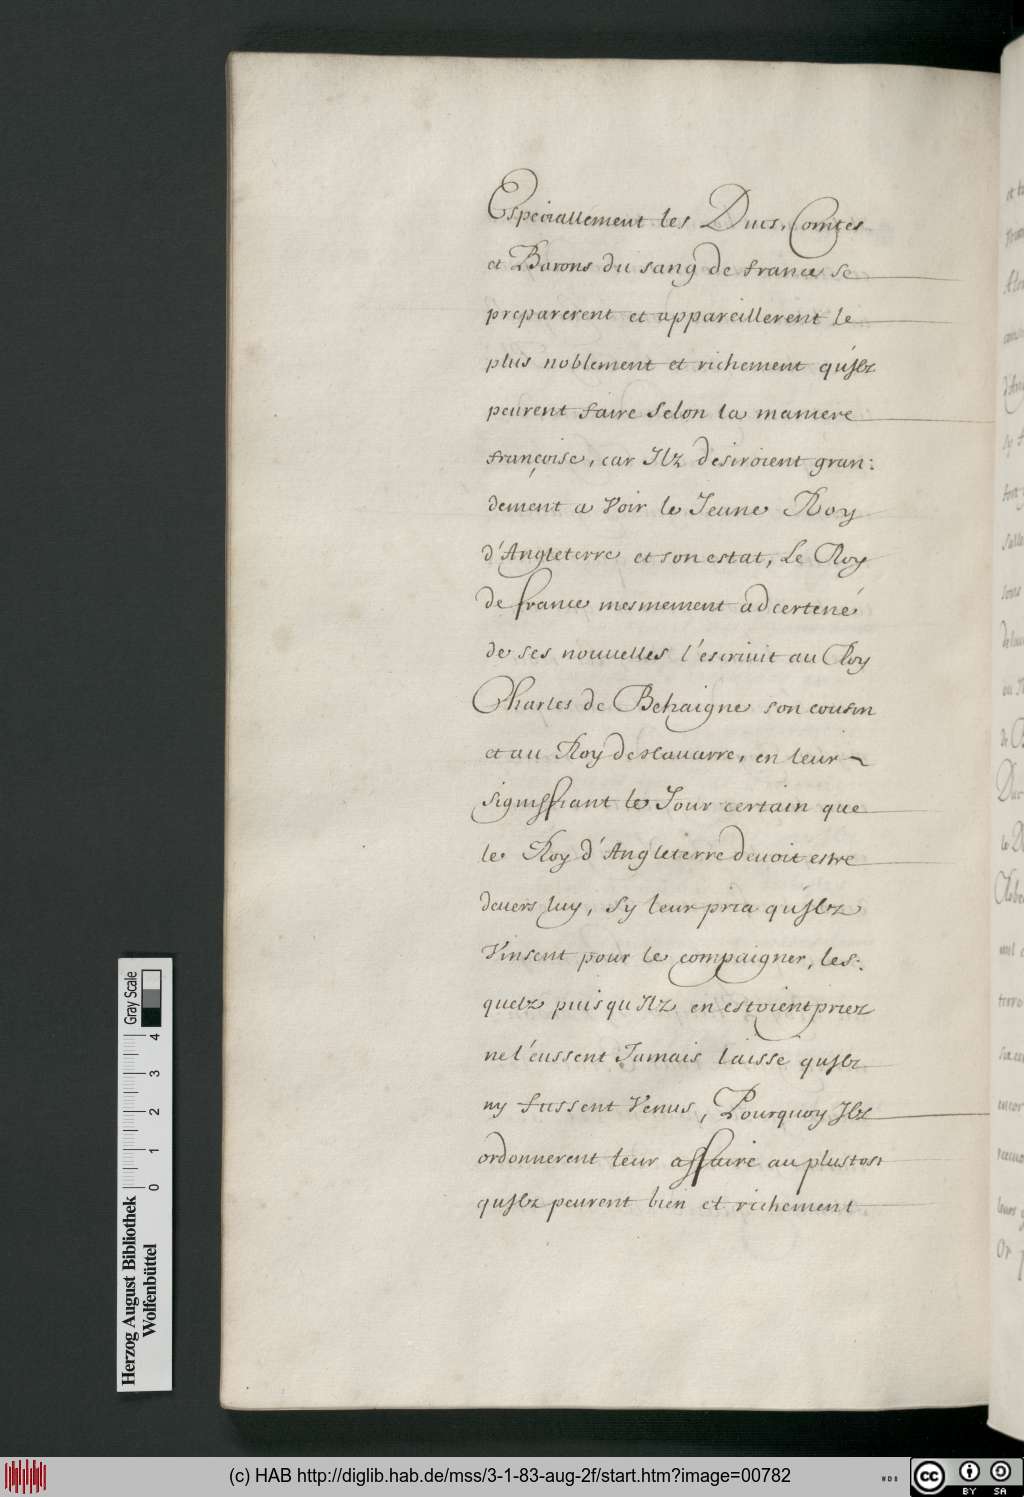 Especiallement les Ducs, Comtes
et Barons du sang de france se
preparerent et appareillerent le
plus noblement et richement qu'jlz
peurent faire selon la maniere
françoise, car Ilz desiroient gran:
dement a Voir le Jeune Roy
d'Angleterre et son estat, Le Roy
de france mesmement adcertené
de ses nouuelles l'escriuit au Roy
Charles de Behaigne son cousin
et au Roy de Nauarre, en leur
signiffiant le Jour certain que
le Roy d'Angleterre deuoit estre
deuers luy, sy leur pria qu'jlz
Vinsent pour le compaigner, les:
quelz puisqu Ilz en estoient priez
ne l'eussent Jamais laisse qu jlz
ny fussent Venus, Pourquoy Jlz
ordonnerent leur affaire au plustost
qu jlz peurent bien et richement
Herzog August Bibliothek
Wolfenbüttel
0 1 2 3 4 Gray Scale
(c) HAB http://diglib.hab.de/mss/3-1-83-aug-2f/start.htm?image=00782
WDB
cc BY SA